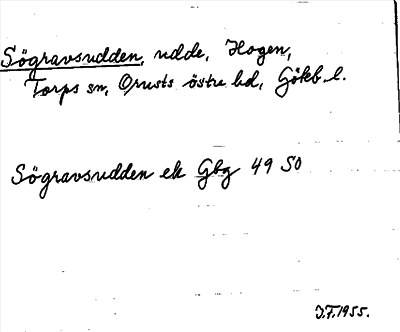 Sögravsudden, udde, Hogen,
Torps sn, Orusts östra hd, Göteb. l.
Sögravsudden ek Gbg 49 SO
J.F. 1955.